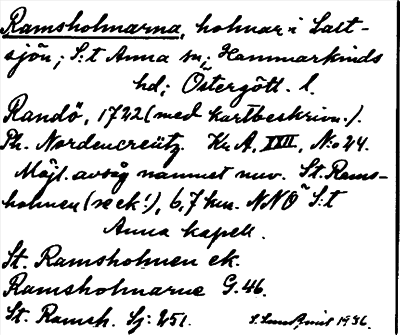 Ramsholmarna, holmar i Salt-
sjön; S:t Anna sn; Hammarkinds
hd; Östergötl. l.
Randö, 1722 (med kartbeskrivn.).
Ph. Nordencreütz. Kr. A. XXII, N:o 24.
Möjl. avsåg namnet nuv. St. Rams-
holmen (se ek.!), 6,7 km. NNÖ S:t
Anna kapell.
St. Ramsholmen ek.
Ramsholmarne G. 46.
St. Ramsh. Sj: 251.
1936.